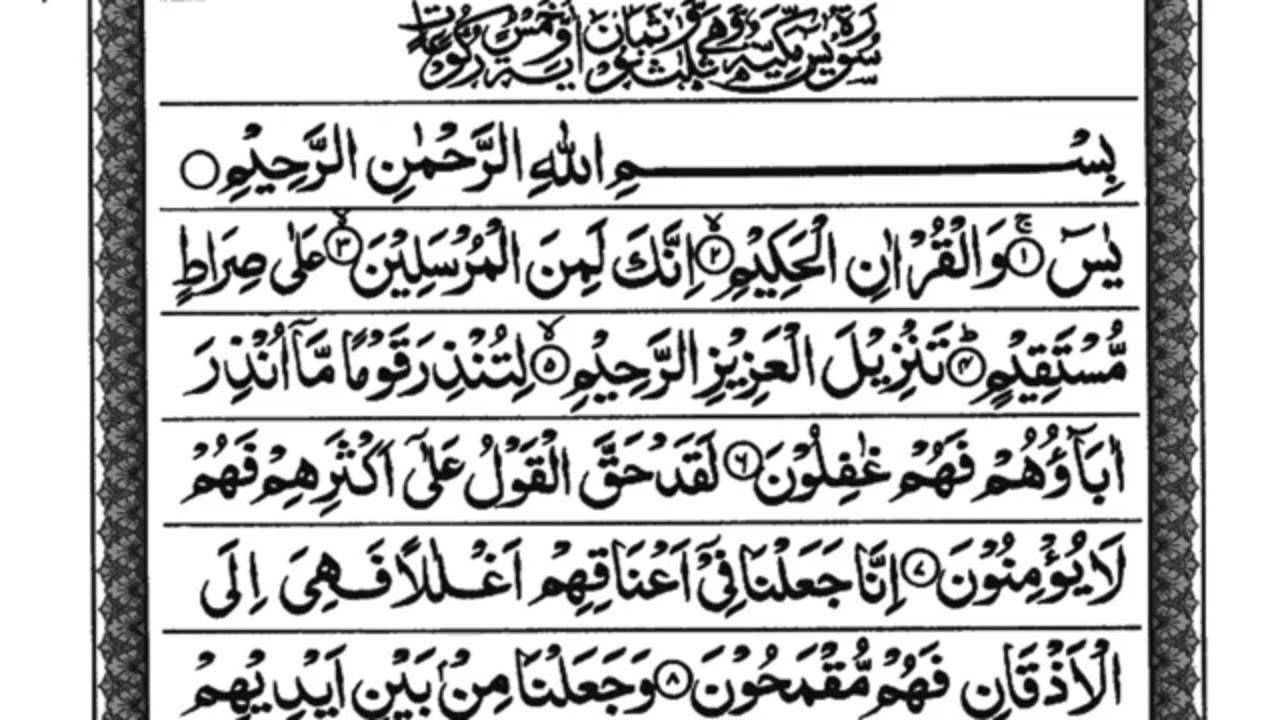 سورة يس مكية وهي ثلث وثمانون اية وخمس ركوعات
بِسْمِ اللّٰهِ الرَّحْمٰنِ الرَّحِيْمِ
يٰسٓ ۚ﴿۱﴾ وَالْقُرْاٰنِ الْحَكِيْمِ ۙ﴿۲﴾ اِنَّكَ لَمِنَ الْمُرْسَلِيْنَ ۙ﴿۳﴾ عَلٰى صِرَاطٍ
مُّسْتَقِيْمٍ ؕ﴿۴﴾ تَنْزِيْلَ الْعَزِيْزِ الرَّحِيْمِ ۙ﴿۵﴾ لِتُنْذِرَ قَوْمًا مَّاۤ اُنْذِرَ
اٰبَآؤُهُمْ فَهُمْ غٰفِلُوْنَ ﴿۶﴾ لَقَدْ حَقَّ الْقَوْلُ عَلٰٓى اَكْثَرِهِمْ فَهُمْ
لَا يُؤْمِنُوْنَ ﴿۷﴾ اِنَّا جَعَلْنَا فِيْۤ اَعْنَاقِهِمْ اَغْلٰلًا فَهِيَ اِلَى
الْاَذْقَانِ فَهُمْ مُّقْمَحُوْنَ ﴿۸﴾ وَجَعَلْنَا مِنْۢ بَيْنِ اَيْدِيْهِمْ